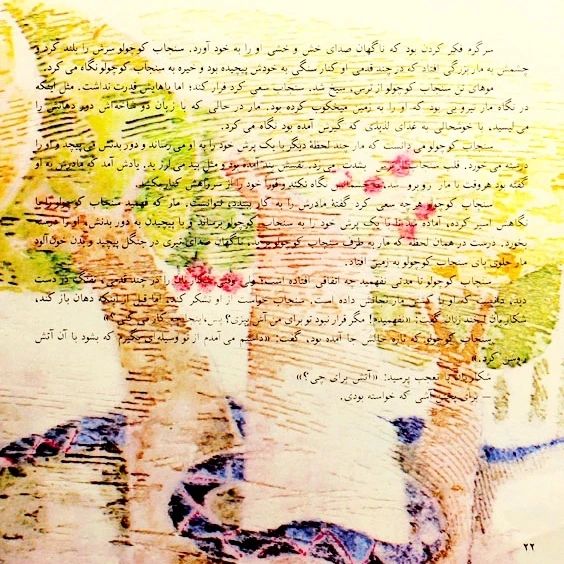 سرگرم فکر کردن بود که ناگهان صدای خش و خشی او را به خود آورد. سنجاب کوچولو سرش را بلند کرد و
چشمش به مار بزرگی افتاد که در چند قدمی او کنار سنگی به خودش پیچیده بود و خیره به سنجاب کوچولو نگاه می کرد.
موهای تن سنجاب کوچولو از ترس، سیخ شد. سنجاب سعی کرد فرار کند؛ اما پاهایش قدرت نداشت. مثل اینکه
در نگاه مار نیرویی بود که او را به زمین میخکوب کرده بود. مار در حالی که با زبان دو شاخه‌اش دور دهانش را
می لیسید، با خوشحالی به غذای لذیذی که گیرش آمده بود نگاه می کرد.
سنجاب کوچولو می دانست که مار چند لحظهٔ دیگر با یک پرش خود را به او می رساند و دور بدنش می پیچد و او را
درسته می خورد. قلب سنجاب بشدت می زد. نفسش بند آمده بود و مثل بید می لرزید. یادش آمد که مادرش به او
گفته بود هر وقت با مار روبرو شد به چشمانش نگاه نکند و فوراً خود را از سر راهش کنار بکشد.
سنجاب کوچولو هر چه سعی کرد گفتهٔ مادرش را به کار ببندد، نتوانست. مار که فهمید سنجاب کوچولو را با
نگاهش اسیر کرده، آماده شد تا با یک پرش خود را به سنجاب کوچولو برساند و با پیچیدن به دور بدنش، او را درسته
بخورد. درست در همان لحظه که مار به طرف سنجاب کوچولو پرید، ناگهان صدای تیری در جنگل پیچید و بدن خون آلود
مار جلوی پای سنجاب کوچولو به زمین افتاد.
سنجاب کوچولو تا مدتی نفهمید چه اتفاقی افتاده است؛ ولی وقتی شکاربان را در چند قدمی، تفنگ در دست
دید، دانست که او با کشتن مار نجاتش داده است. سنجاب خواست از او تشکر کند. اما قبل از اینکه دهان باز کند،
شکاربان خنده زنان گفت: «نفهمیدم! مگر قرار نبود تو برای من آش بپزی؟ پس اینجا چه کار می کنی؟»
سنجاب کوچولو که تازه حالش جا آمده بود، گفت: «داشتم می آمدم از تو وسیله‌ای بگیرم که بشود با آن آتش
روشن کرد.»
شکاربان با تعجب پرسید: «آتش برای چی؟»
— برای پختن آشی که خواسته بودی.
۲۲